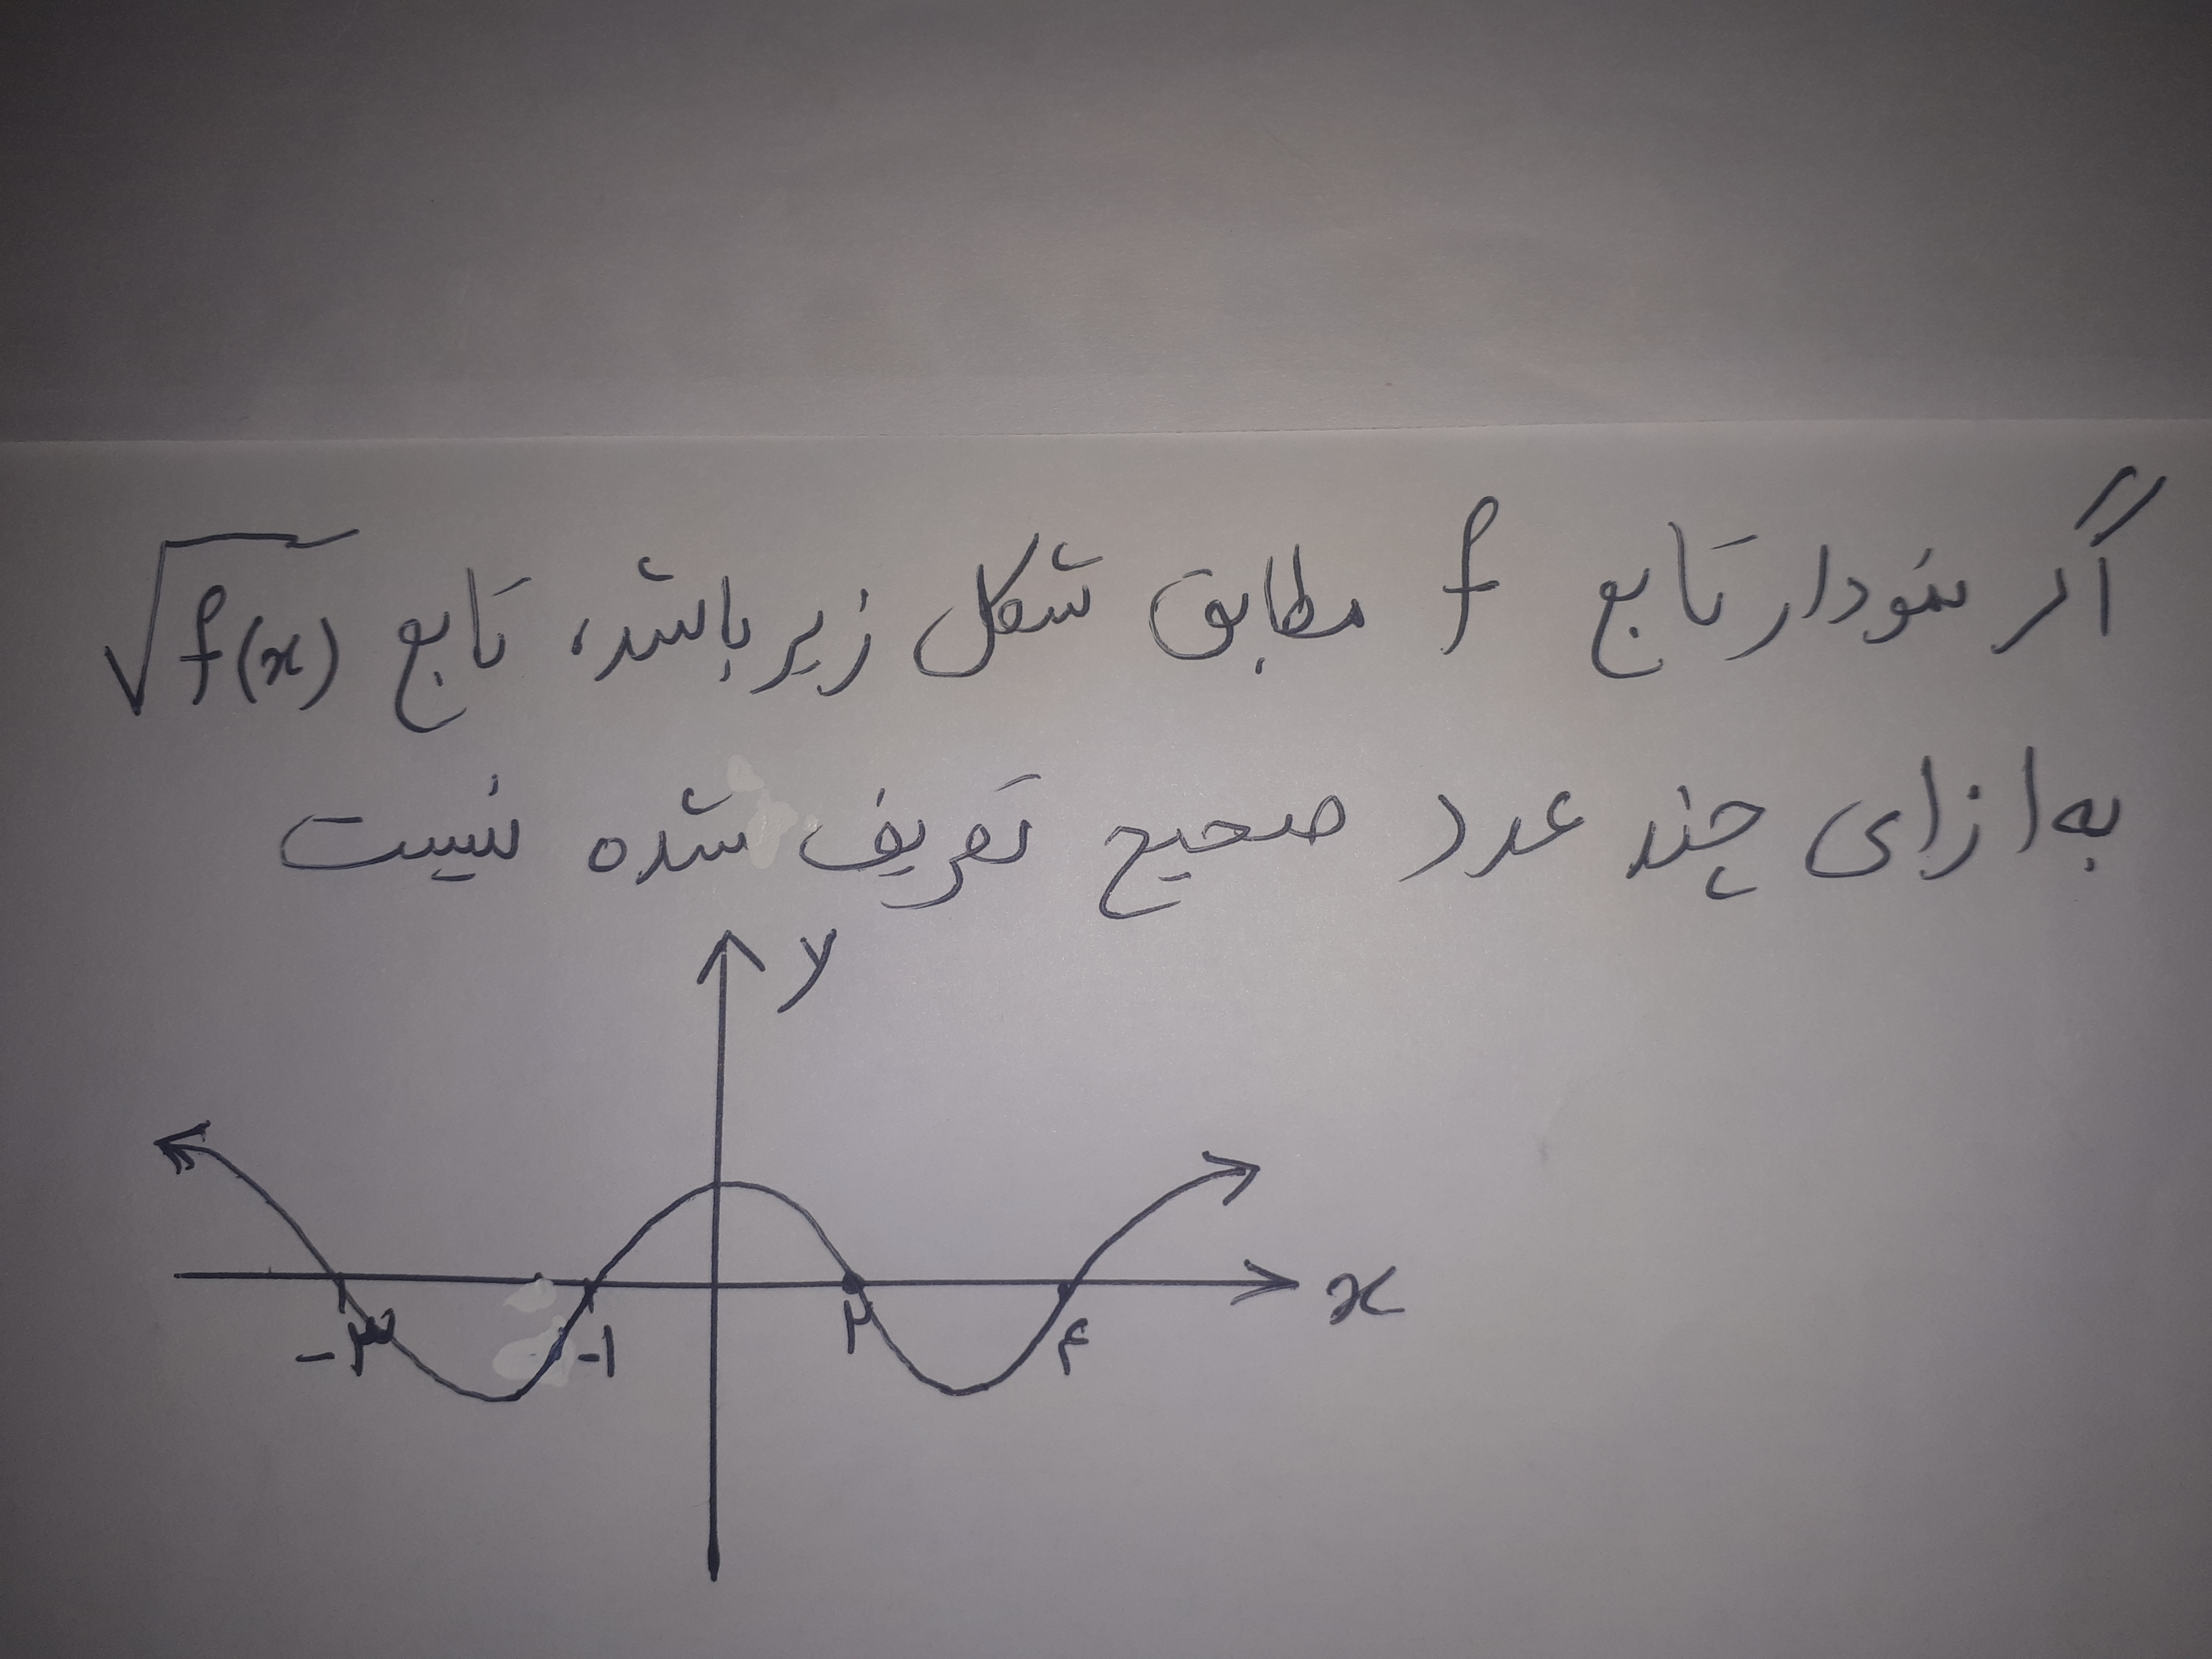 اگر نمودار تابع f مطابق شکل زیر باشد، تابع √f(x)
به ازای چند عدد صحیح تعریف شده نیست
y
x
-۳ -۱ ۲ ۴